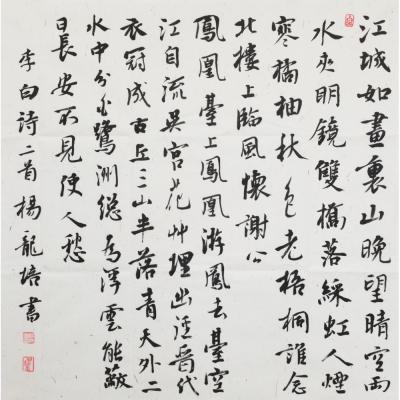 江城如畫裏山晚望晴空兩
水夾明鏡雙橋落綵虹人煙
寒橘柚秋色老梧桐誰念
北樓上臨風懷謝公
鳳凰臺上鳳凰游鳳去臺空
江自流吳宮花艸埋幽徑晉代
衣冠成古丘三山半落青天外二
水中分白鷺洲總為浮雲能蔽
日長安不見使人愁
李白詩二首楊龍培書